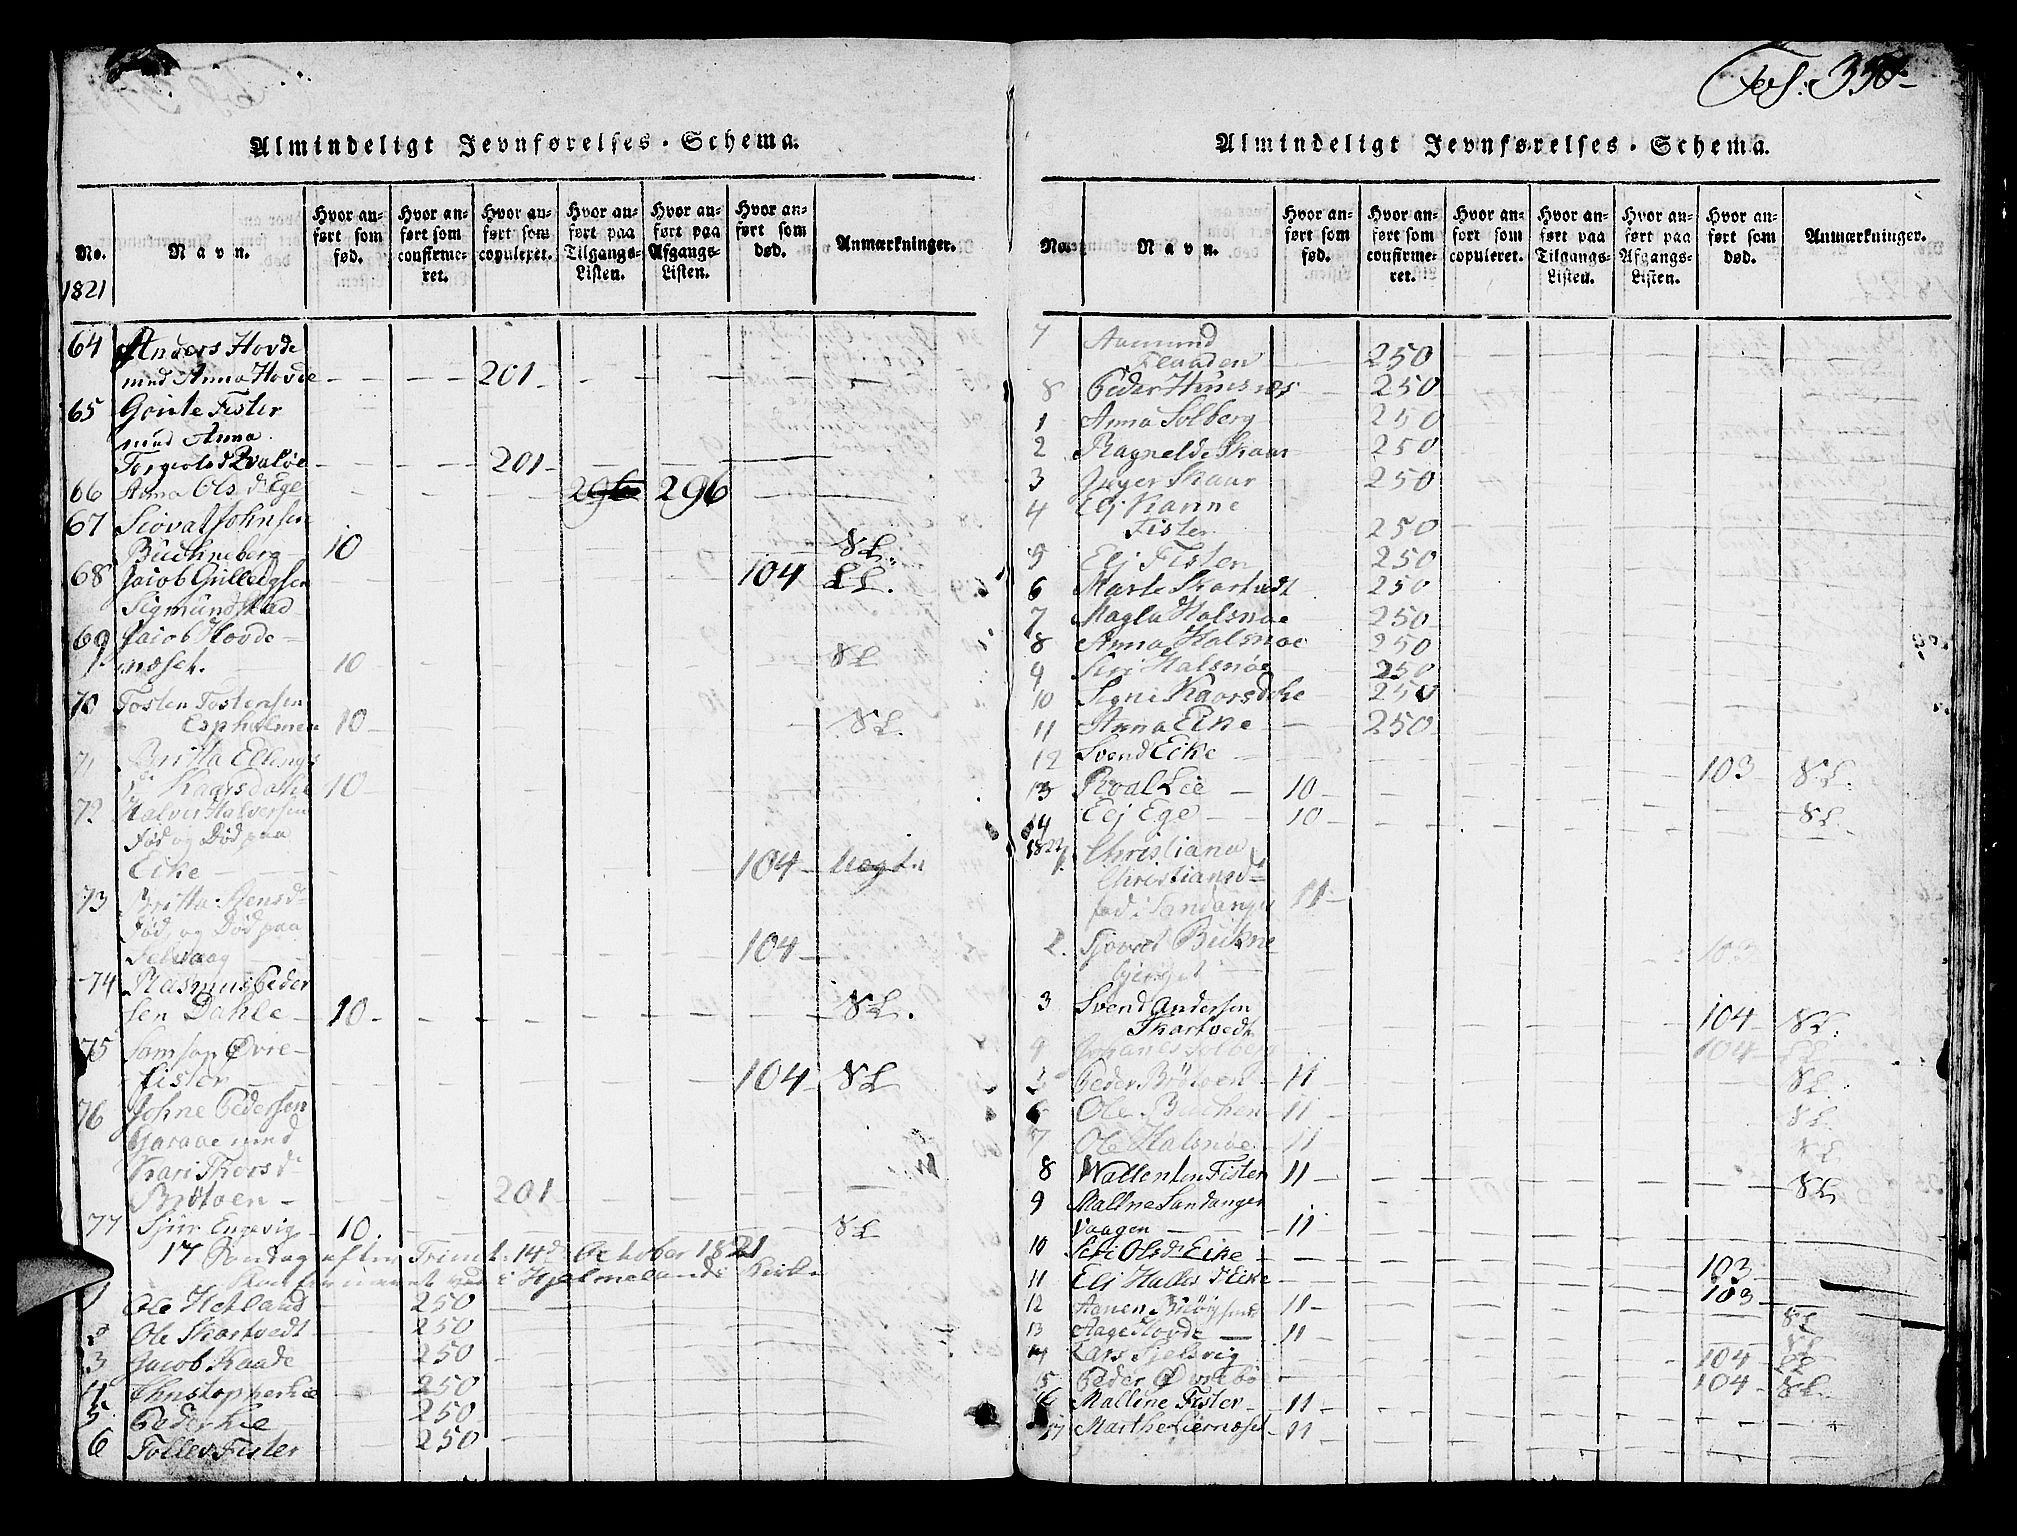 Almindeligt Jevnførelses-Schema.
No. Navn. Hvor anført som fød. Hvor anført som confirmeret. Hvor anført som copuleret. Hvor anført paa Tilgangs-Listen. Hvor anført paa Afgangs-Listen. Hvor anført som død. Anmærkninger.
1821
64 Anders Hovde
med Anna Hovde 201
65 Gonte Fister
med Anna
Torgiolsd Qvaløe 201
66 Anna Ols. d. Ege 296 296
67 Siovat Johnsen
Buchneberg 10 SL.
68 Jacob Gullecgsen 104 LL.
Sigmundstad
69 Jacob Hovde-
næset. 10 SL
70 Tosten Tostensen
Espholmen 10 SL.
71 Britta Ellings
d. Kaarsdahl 10
72 Halver Halversen
Fød og Død paa
Eike 104
73 Britta Stensd=
Fød, og Død paa
Selvaag 104
74 Rasmus Peder
sen Dahle 10 SL.
75 Samson Øvre-
Fister 104 SL
76 Johne Pedersen
med
Kari Thorsd
Brøtoen 201
77 Sjur Engevig 10. SL
17 Søndag efter Trinit. 14d October 1821
i Hjelmelands Kirke
1 Ole Hetland 250
2 Ole Skartvedt 250
3 Jacob Kaade 250
4 Christopper Lie 250
5 Peder Lie 250
6 Tollev Fister 250
Fol: 350
Almindeligt Jevnførelses-Schema.
No. Navn. Hvor anført som fød. Hvor anført som confirmeret. Hvor anført som copuleret. Hvor anført paa Tilgangs-Listen. Hvor anført paa Afgangs-Listen. Hvor anført som død. Anmærkninger.
7 Aamund
Flaaden 250
8 Peder Huusnæs 250
1 Anna Solberg 250
2 Ragnelde Skaar 250
3 Inger Skaar 250
4 Elj Kanne
Fister 250
5 Elj Fister 250
6 Marte Skartvedt 250
7 Magla Halsnøe 250
8 Anna Halsnøe 250
9 Siri Halsnøe 250
10 Signe Kaarsdahe 250
11 Anna Eike 250
12 Svend Eike 103 SL.
13 Roal Lie 10
14 Elj Ege 10 SL.
1822
1. Christiana
Christiansd=
fød i Sandanger 11
2. Sjovat Bukne
bjerget 103
3 Svend Andersen
Skartvedt 104 SL.
4 Johanes Solberg 104 LL
5 Peder Brøtoen 11 SL.
6 Ole Buchen 11 SL.
7 Ole Halsnøe 11 SL
8 Wallentin Fister 11 SL
9 Maline Sandanger
Vaagen 11
10 Siri Olsd. Eike 103
11 Elj Halles d. Eike 103
12 11 SL
13 Aage Hovde 11 SL
14 Lars Sjelsvig 104 LL
15 Peder Øvrebø 104 SL.
16 Malline Fister 11
17 Marthe Liernæset 11